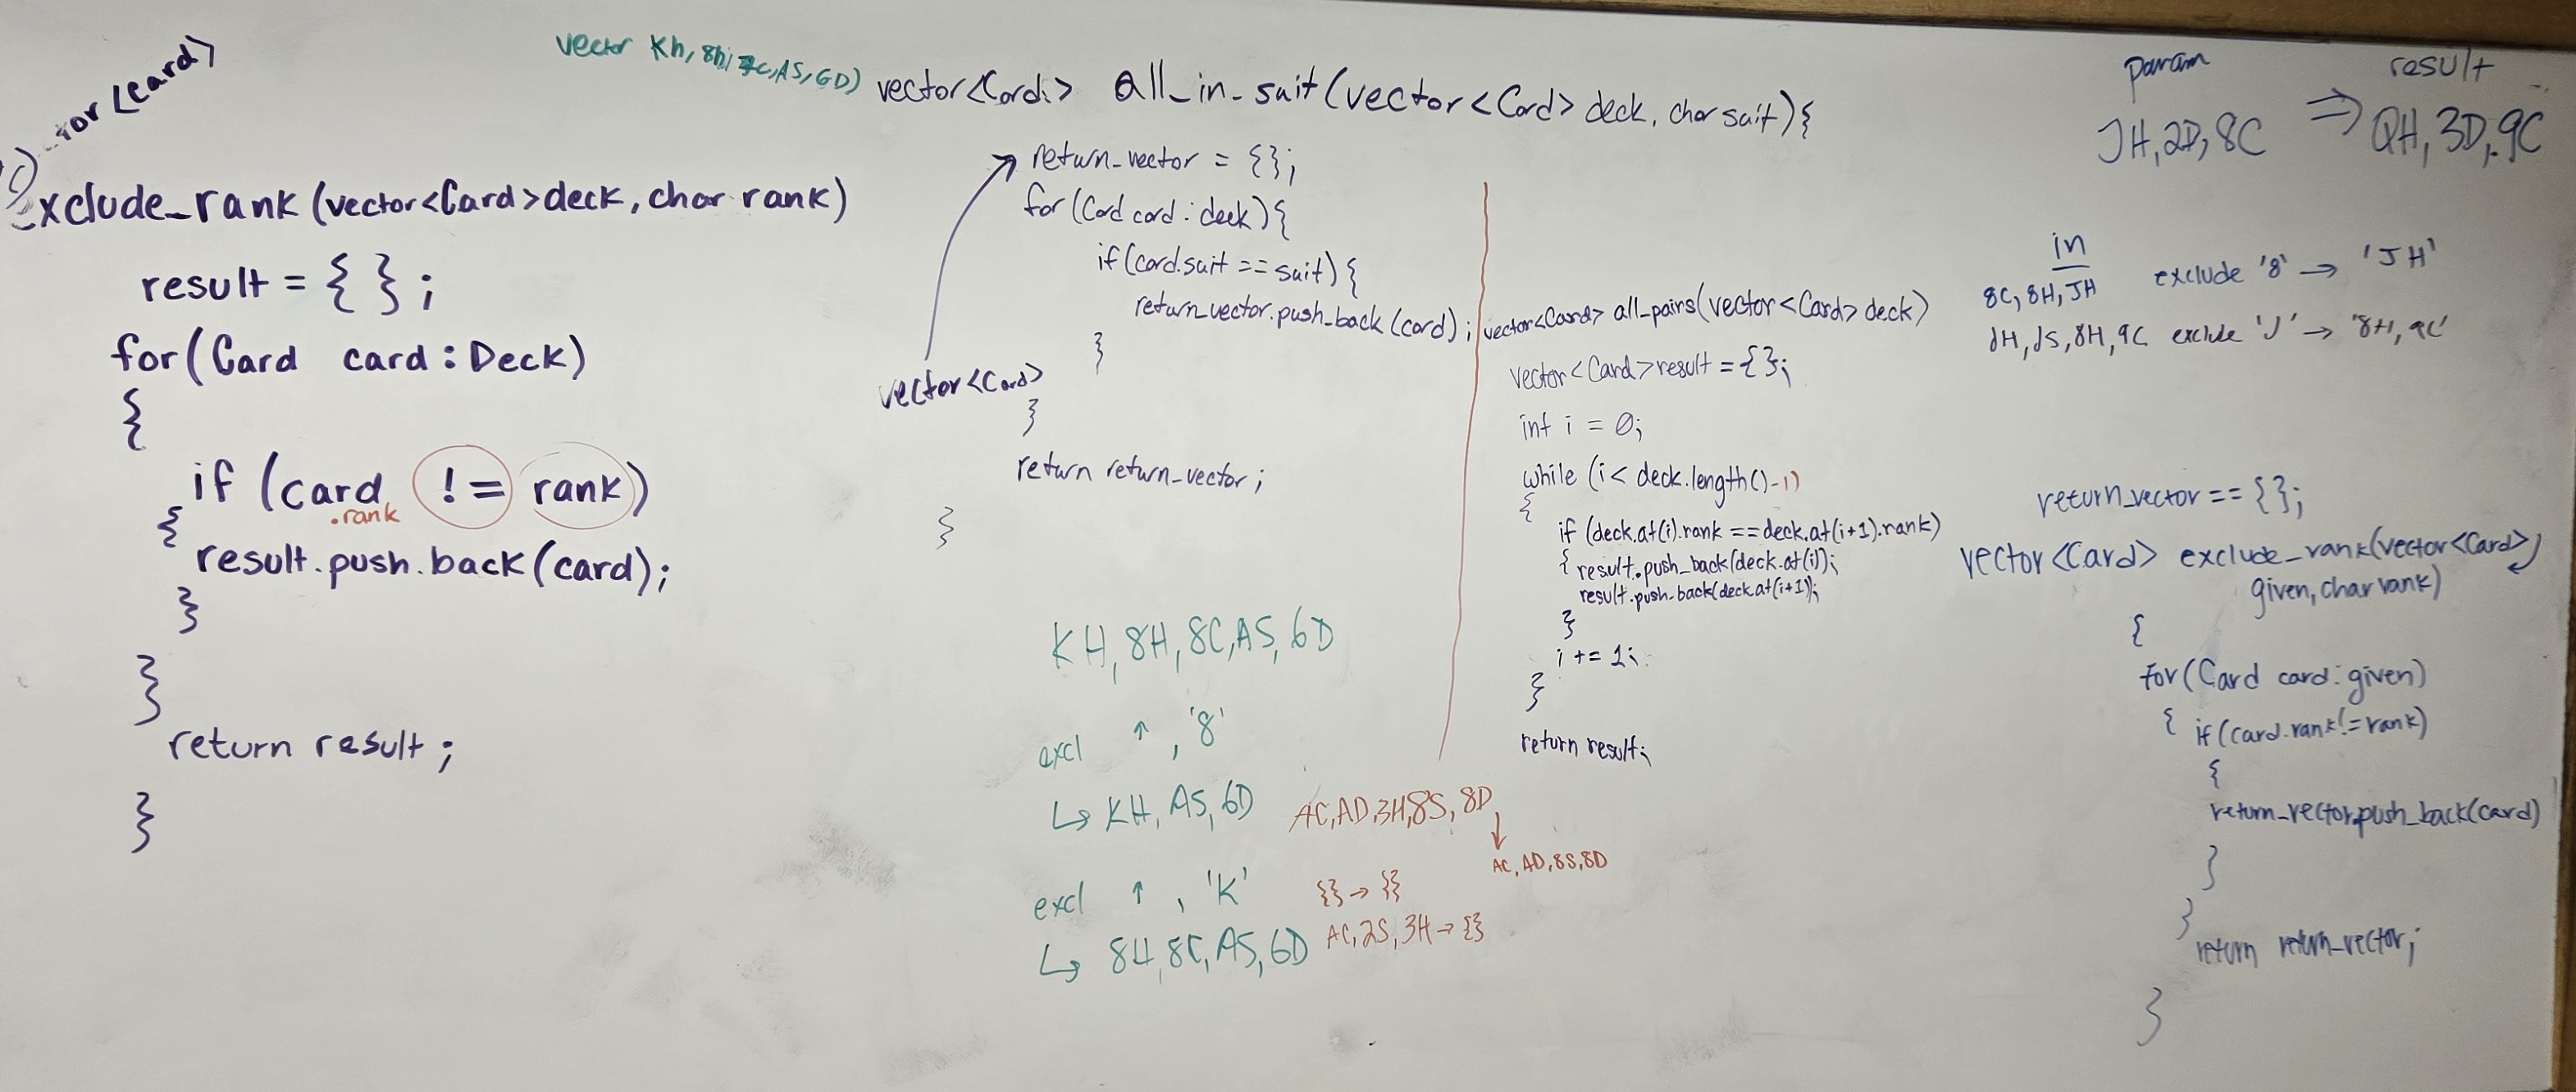 tor<Card>
exclude_rank(vector<Card>deck, char rank)
result = { } ;
for(Card card : Deck)
{
if (card != rank)
.rank
{
result.push.back(card);
}
}
return result ;
}
vector Kh, 8h, 7c, AS, 6D)
vector<Card> all_in_suit(vector<Card> deck, char suit){
return_vector = {};
for(Card card : deck){
if(card.suit == suit){
return_vector.push_back(card);
}
vector<Card>
}
return return_vector;
}
KH, 8H, 8C, AS, 6D
excl ↑, '8'
↳ KH, AS, 6D
excl ↑, 'K'
↳ 8H, 8C, AS, 6D
AC, AD, 3H, 8S, 8D
↓
AC, AD, 8S, 8D
{} → {}
AC, 2S, 3H → {}
vector<Card> all_pairs(vector<Card> deck)
vector<Card> result = {};
int i = 0;
while (i < deck.length()-1)
{
if (deck.at(i).rank == deck.at(i+1).rank)
{ result.push_back(deck.at(i));
result.push_back(deck.at(i+1);
}
i += 1;
}
return result;
param result
JH, 2D, 8C ⇒ QH, 3D, 9C
in
8C, 8H, JH exclude '8' → 'JH'
JH, JS, 8H, 9C exclude 'J' → '8H, 9C'
return_vector == {};
vector<Card> exclude_rank(vector<Card>
given, char rank)
{
for(Card card : given)
{ if(card.rank != rank)
{
return_vector.push_back(card)
}
}
return return_vector;
}